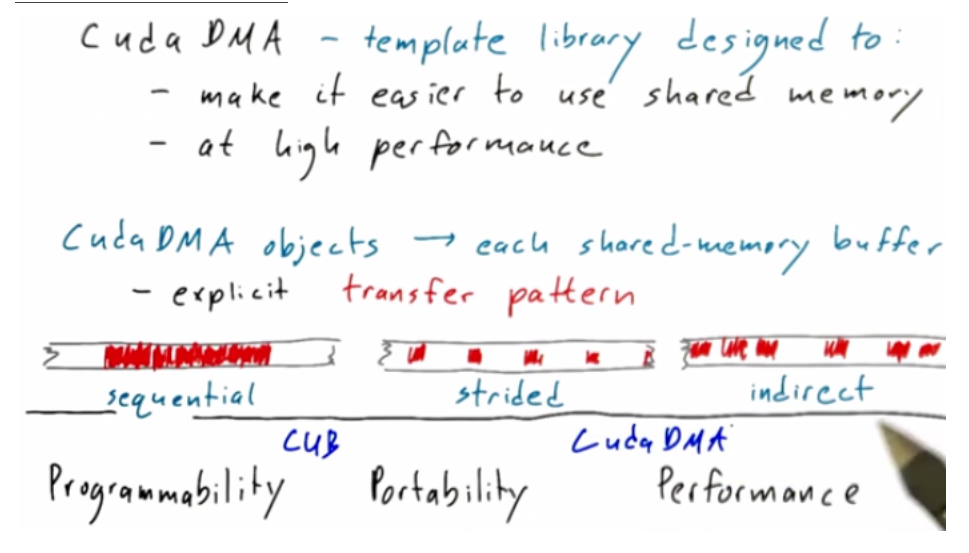 CudaDMA - template library designed to:
- make it easier to use shared memory
- at high performance
CudaDMA objects → each shared-memory buffer
- explicit transfer pattern
sequential strided indirect
CUB CudaDMA
Programmability Portability Performance